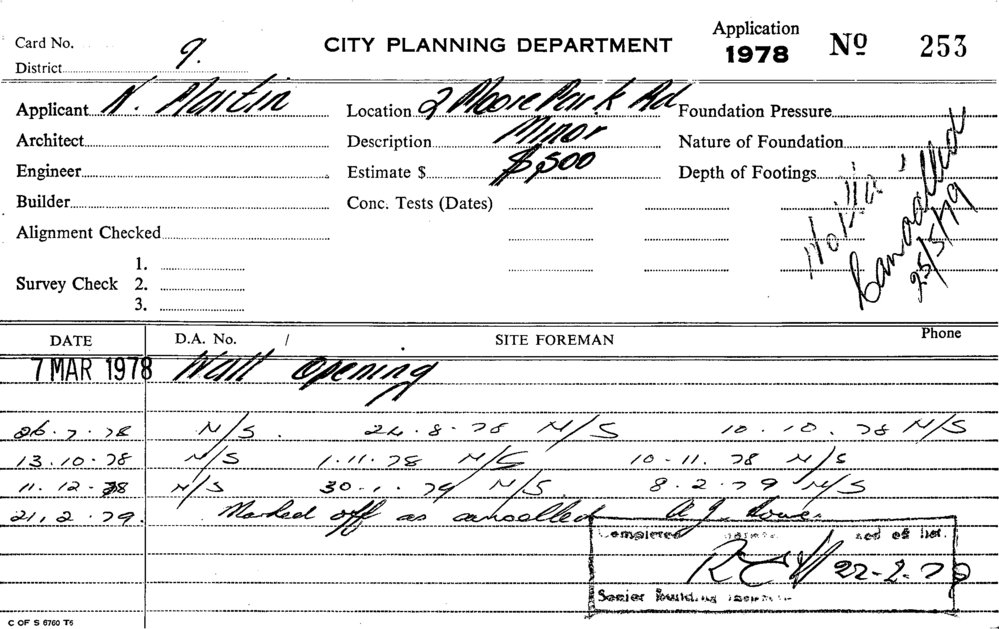 Card No.
CITY PLANNING DEPARTMENT
Application
1978
Nº 253
District 9.
Applicant N. Martin
Location 2 Moore Park Rd
Foundation Pressure
Architect
Description Minor
Nature of Foundation
Engineer
Estimate $ $500
Depth of Footings
Builder
Conc. Tests (Dates)
Cancelled
25/5/79
Alignment Checked
Survey Check
1.
2.
3.
DATE D.A. No. / SITE FOREMAN Phone
7 MAR 1978 Wall Opening
26.7.78 N/S. 24.8.78 N/S 10.10.78 N/S
13.10.78 N/S 1.11.78 N/S 10.11.78 N/S
11.12.78 N/S 30.1.79 N/S. 8.2.79 N/S
21.2.79. Marked off as cancelled A J
Completed off list.
22-2-79
Senior Building
C OF S 6760 T5